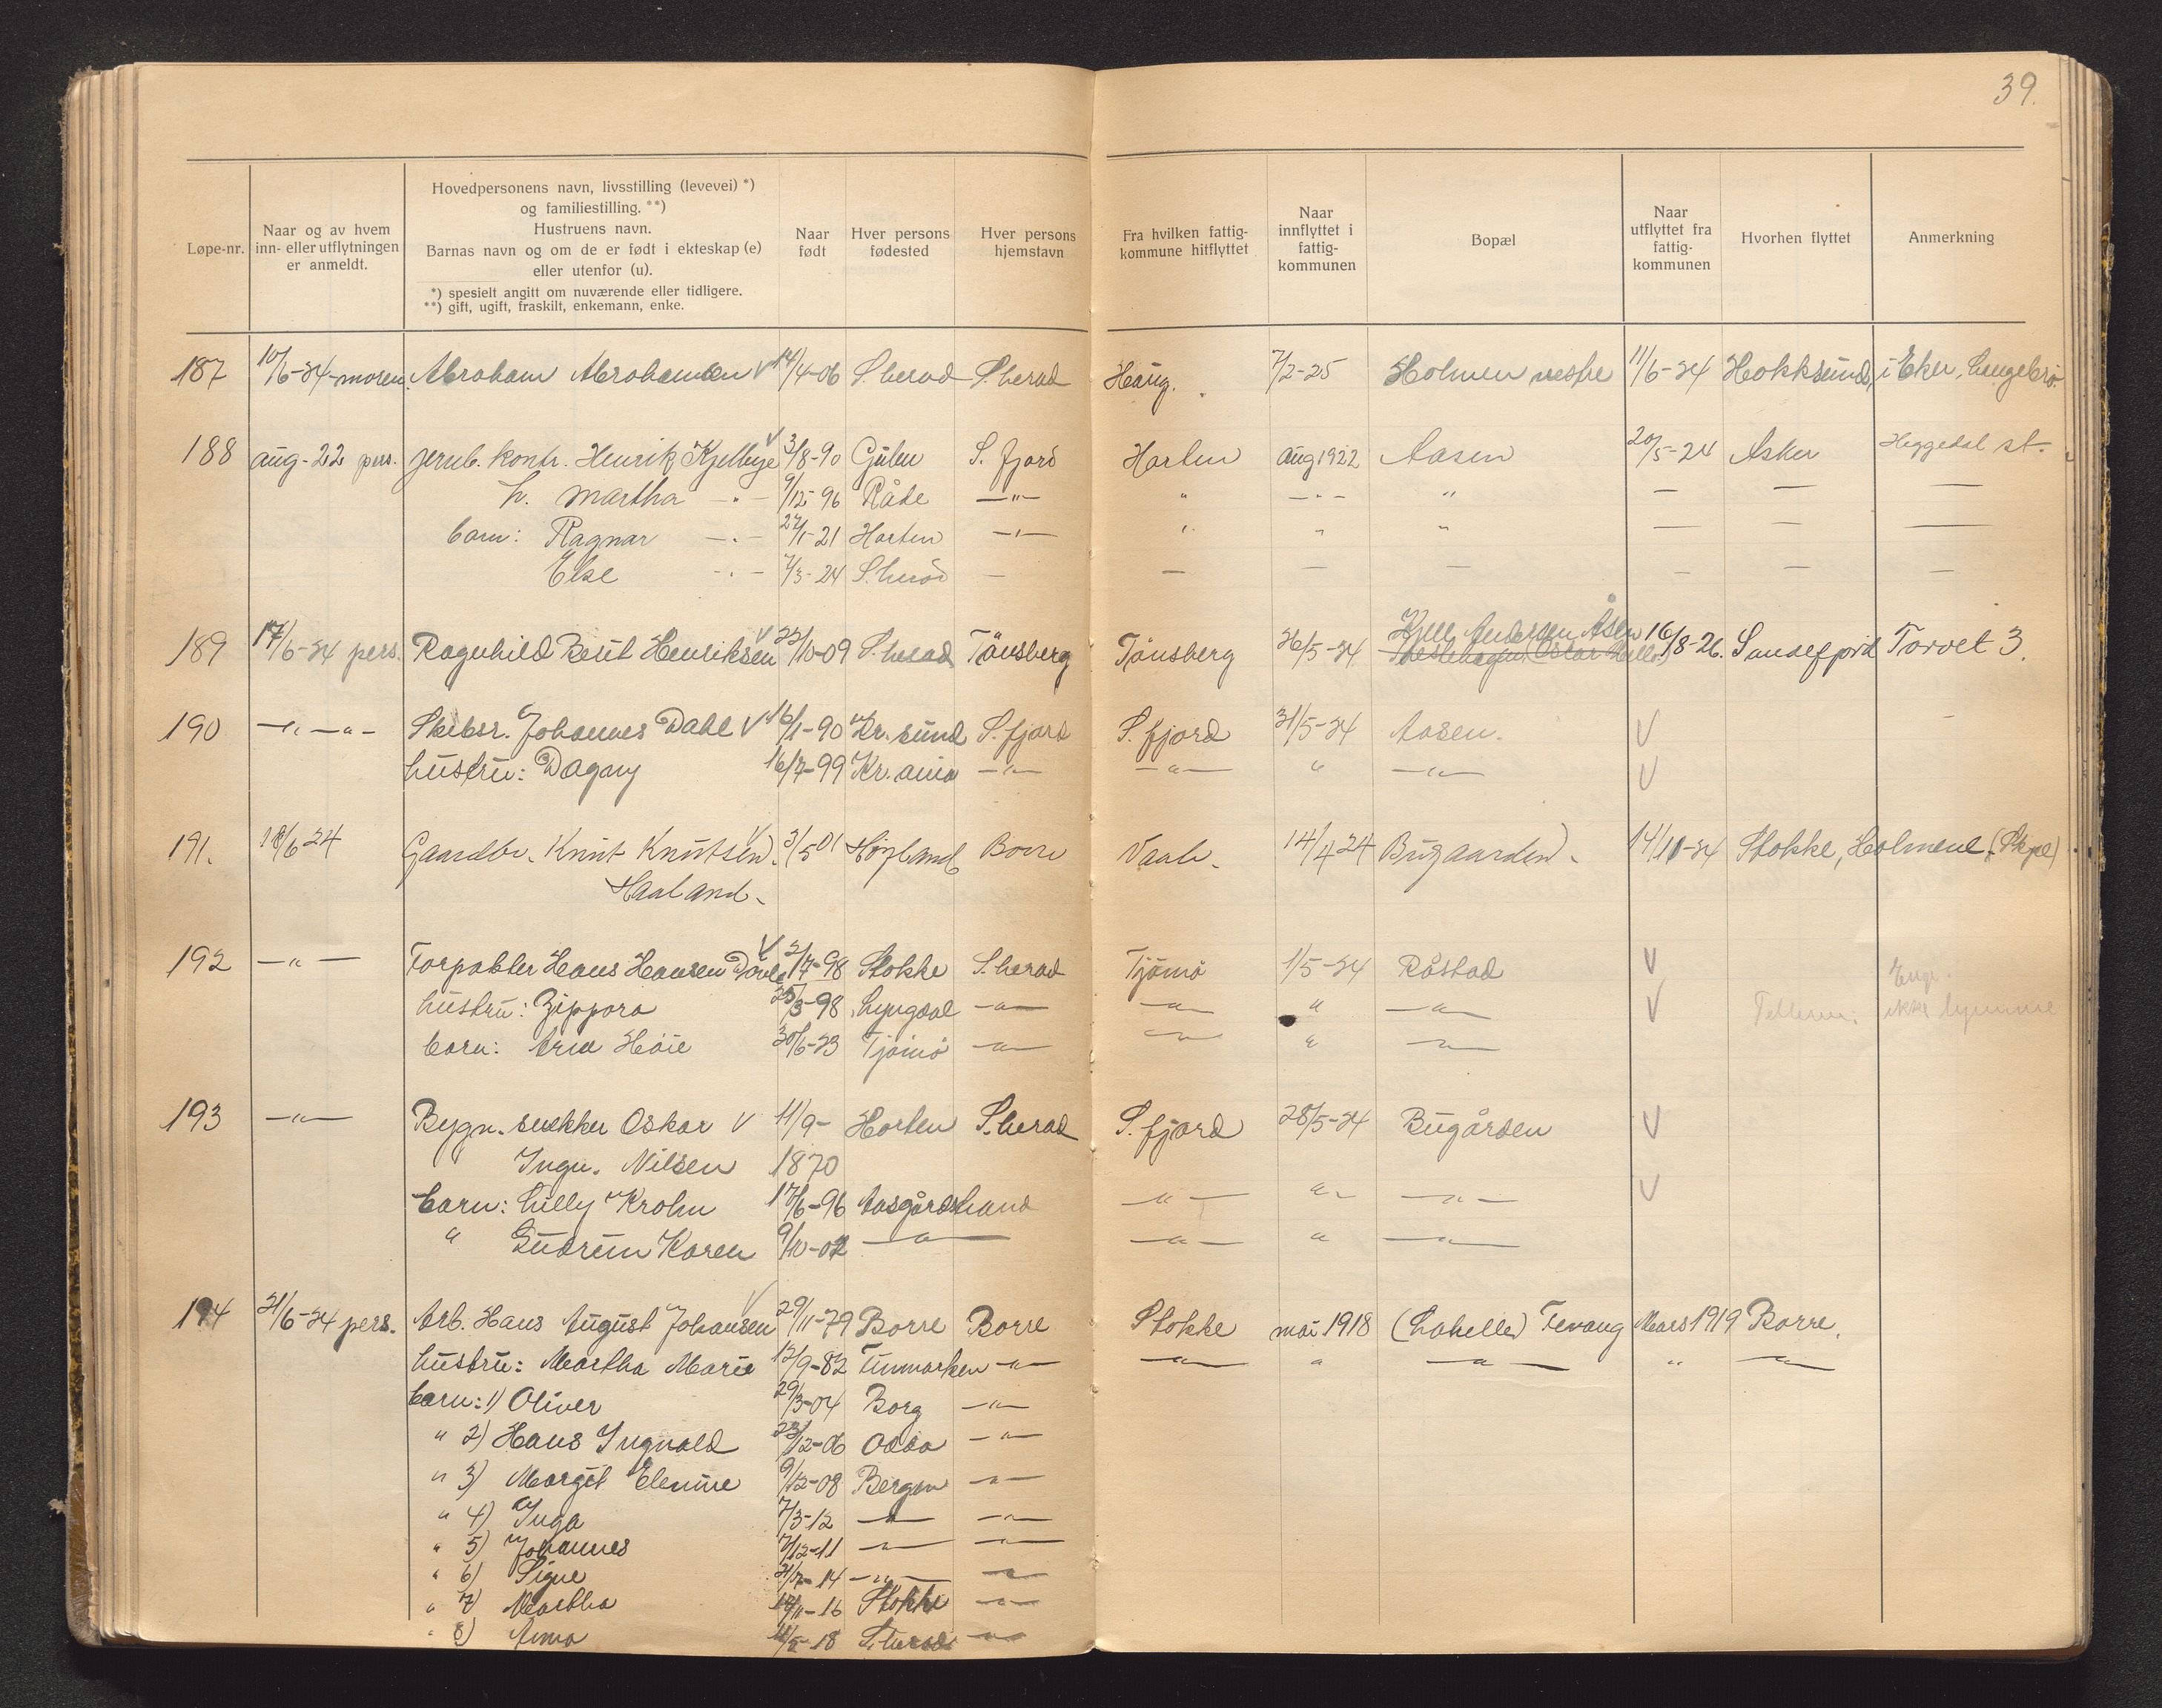 39.
Løpe-nr.
Naar og av hvem
inn- eller utflytningen
er anmeldt.
Hovedpersonens navn, livsstilling (levevei) *)
og familiestilling. **)
Hustruens navn.
Barnas navn og om de er født i ekteskap (e)
eller utenfor (u).
*) spesielt angitt om nuværende eller tidligere.
**) gift, ugift, fraskilt, enkemann, enke.
Naar
født
Hver persons
fødested
Hver persons
hjemstavn
Fra hvilken fattig-
kommune hitflyttet
Naar
innflyttet i
fattig-
kommunen
Bopæl
Naar
utflyttet fra
fattig-
kommunen
Hvorhen flyttet
Anmerkning
187 10/6-24-moren. Abraham Abrahamsen V 14/4-06 S.herad S.herad Haug. 7/2-25 Holmen vestre 11/6-24 Hokksund, i Eker,
188 aug-22 pers. jernb. kontr. Henrik Kjelbye V 3/8-90 Gulen S. fjord Horten aug 1922 Aasen 20/5-24 Asker Heggedal st.
h. Martha -"- 9/12-96 Råde -"- " -"- " — — —
barn: Ragnar -"- 27/1-21 Horten -"- " " " — — —
Else -"- 7/3-24 S.herad — — — — — — —
189 17/6-24 pers. Ragnhild Berit Henriksen V 22/10-09 S.herad Tönsberg Tönsberg 26/5-24 Kjell Andersen Åsen 16/8-26. Sandefjord Torvet 3.
190 -"- -"- Skibsr. Johannes Dahl V 16/1-90 Kr.sund S.fjord S.fjord 31/5-24 Aasen. V
hustru: Dagny 16/7-99 Kr.ania -"- -"- " -"- V
191. 18/6 24 Gaardbr. Knut Knutsen V 3/5 01 Høyland Borre Vaale. 14/4 24 Bugaarden. 14/11-24 Stokke, Holmene,
Haaland.
192 -"- Torpabler Hans Hansen V 2/7-98 Stokke S.herad Tjömö 1/5-24 Råstad V
hustru: Zippora 25/3-98 Lyngdal -"- -"- " -"- V ikke
barn: Høie 30/6-23 Tjömö -"- -"- " -"-
193 -"- Bygn.snekker Oskar V 11/9- Horten S.herad S.fjord 28/5-24 Bugården V
Ingv. Nilsen 1870
barn: Lilly Krohn 17/6-96 Aasgårdstrand -"- " -"- V
" Gudrun Karen 9/10-02 -"- -"- " -"-
194 21/6-24 pers. Arb. Hans August Johansen V 29/11-79 Borre Borre Stokke mai 1918 (Labelle) Tevang Mars 1919 Borre.
hustru: Martha Marie 12/9-82 Finmarken -"- -"- " -"- " -"-
barn: 1) Oliver 29/3-04 Borg -"-
" 2) Hans Ingvald 23/12-06 Odda -"-
" 3) Margit Elenine 9/12-08 Bergen -"-
" 4) Inga 7/3-12 -"- -"-
" 5) Johannes 7/12-11 -"- -"-
" 6) Signe -14 -"- -"-
" 7) Martha -16 Stokke -"-
" 8) Anna -18 S.herad -"-